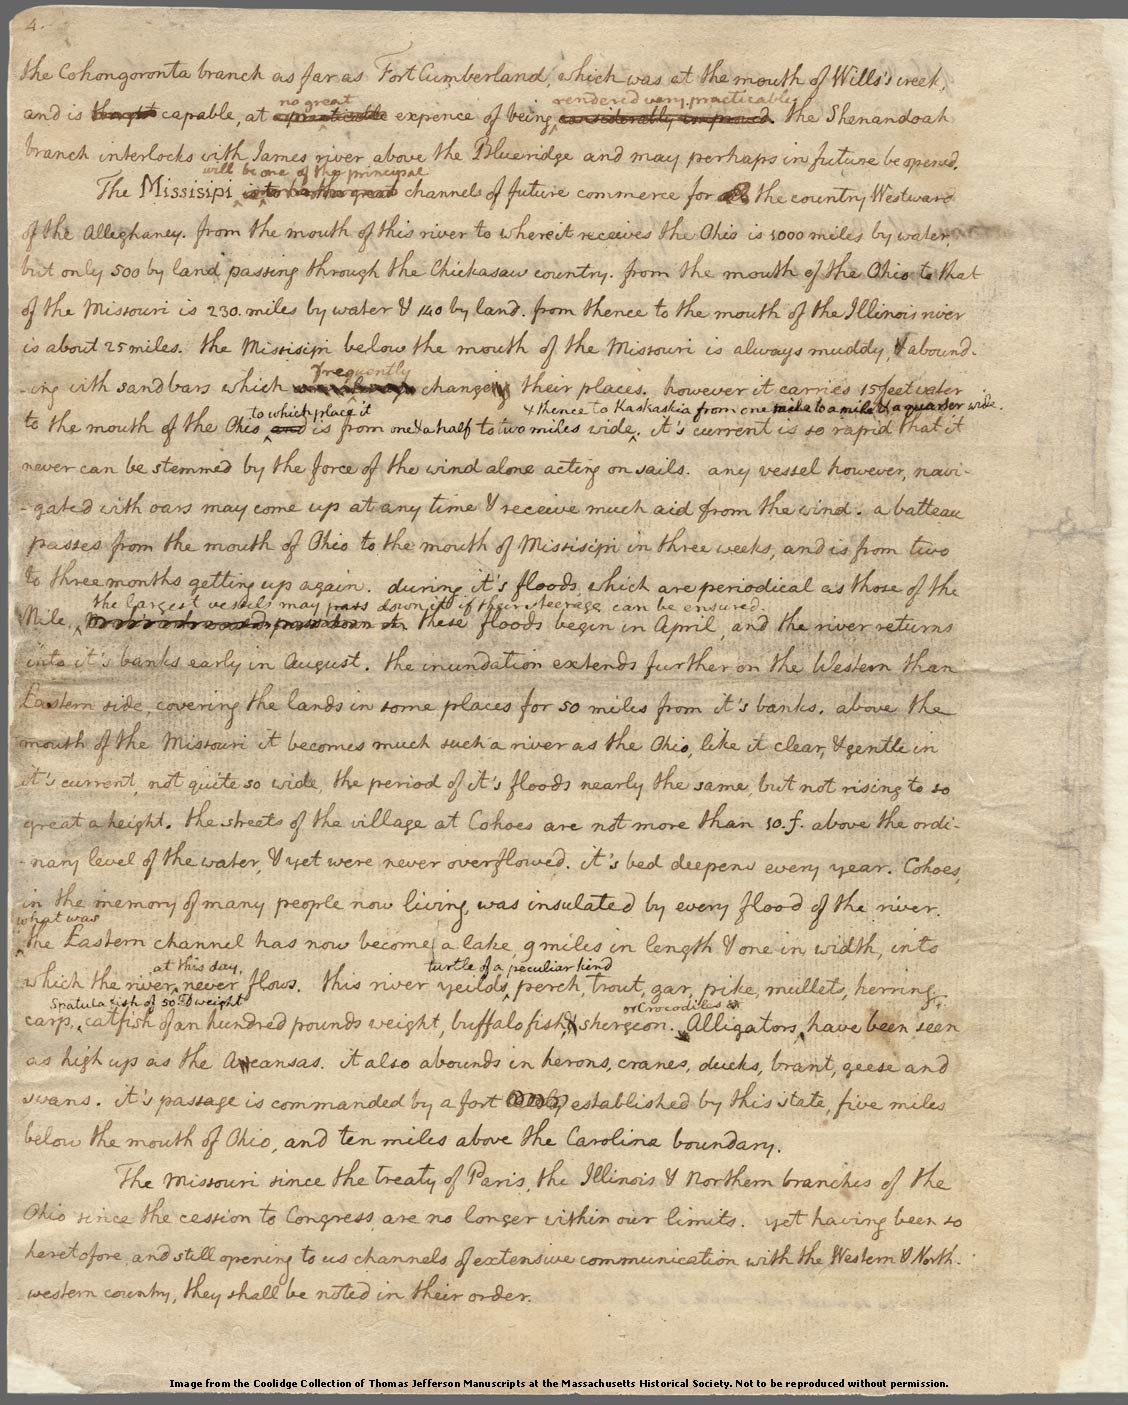 4.
the Cohongoronta branch as far as Fort Cumberland, which was at the mouth of Wills's creek,
no great rendered very practicable
and is capable, at expence of being the Shenandoah
branch interlocks with James river above the Blueridge and may perhaps in future be opened.
will be one of the principal
The Missisipi is to be the great channels of future commerce for the country Westward
of the Alleghaney. from the mouth of this river to where it receives the Ohio is 1000 miles by water,
but only 500 by land passing through the Chickasaw country. from the mouth of the Ohio to that
of the Missouri is 230. miles by water & 140 by land. from thence to the mouth of the Illinois river
is about 25 miles. the Missisipi below the mouth of the Missouri is always muddy, & abound-
frequently
-ing with sand bars which change their places. however it carries 15 feet water
to which place it & thence to Kaskaskia from one mile to a mile & a quarter wide.
to the mouth of the Ohio and is from one & a half to two miles wide. it's current is so rapid that it
never can be stemmed by the force of the wind alone acting on sails. any vessel however, navi-
-gated with oars may come up at any time & receive much aid from the wind. a batteau
passes from the mouth of Ohio to the mouth of Missisipi in three weeks, and is from two
to three months getting up again. during it's floods, which are periodical as those of the
the largest vessels may pass down it if their steerage can be ensured.
Nile, these floods begin in April, and the river returns
into it's banks early in August. the inundation extends further on the Western than
Eastern side, covering the lands in some places for 50 miles from it's banks. above the
mouth of the Missouri it becomes much such a river as the Ohio, like it clear, & gentle in
it's current, not quite so wide, the period of it's floods nearly the same, but not rising to so
great a height. the streets of the village at Cohoes are not more than 10.f. above the ordi-
-nary level of the water, & yet were never overflowed. it's bed deepens every year. Cohoes,
in the memory of many people now living, was insulated by every flood of the river.
what was
the Eastern channel has now become a lake, 9 miles in length & one in width, into
at this day, turtle of a peculiar kind
which the river never flows. this river yeilds perch, trout, gar, pike, mullets, herrings,
Spatula fish of 50. ℔ weight or Crocodiles
carp, catfish of an hundred pounds weight, buffalo fish, & sturgeon. Alligators have been seen
as high up as the Acansas. it also abounds in herons, cranes, ducks, brant, geese and
swans. it's passage is commanded by a fort established by this state, five miles
below the mouth of Ohio, and ten miles above the Carolina boundary.
The Missouri since the treaty of Paris, the Illinois & Northern branches of the
Ohio since the cession to Congress, are no longer within our limits. yet having been so
heretofore, and still opening to us channels of extensive communication with the Western & North-
western country, they shall be noted in their order.
Image from the Coolidge Collection of Thomas Jefferson Manuscripts at the Massachusetts Historical Society. Not to be reproduced without permission.